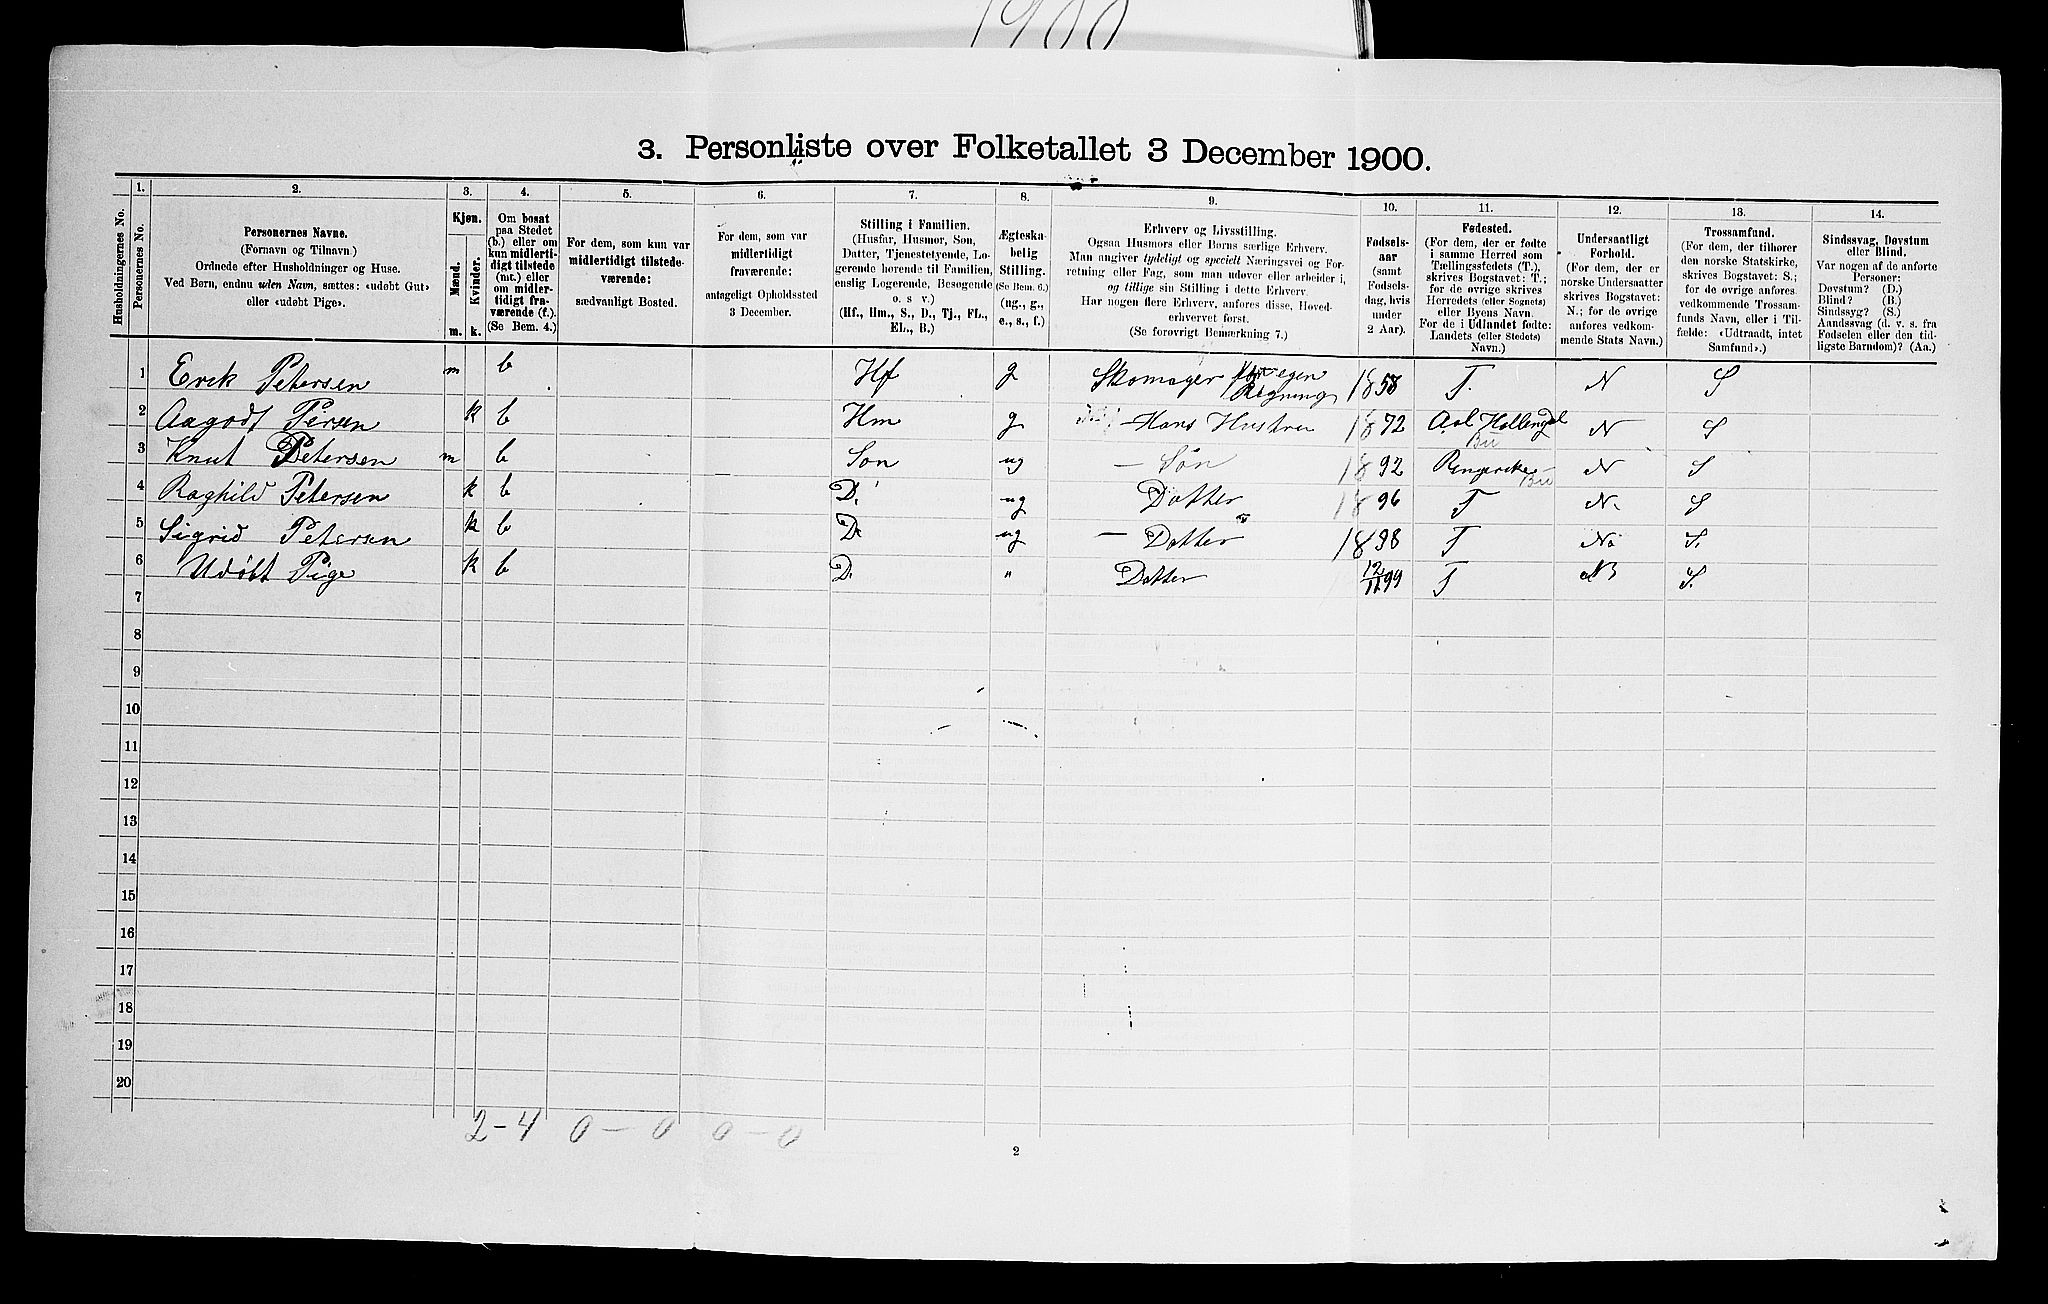 1900
3. Personliste over Folketallet 3 December 1900.
Husholdningernes No.
1.
Personernes No.
2.
Personernes Navne.
(Fornavn og Tilnavn.)
Ordnede efter Husholdninger og Huse.
Ved Børn, endnu uden Navn, sættes: «udøbt Gut»
eller «udøbt Pige».
3.
Kjøn.
Mænd.
Kvinder.
m. k.
4.
Om bosat
paa Stedet
(b.) eller om
kun midlerti-
digt tilstede
(mt.) eller
om midler-
tidigt fra-
værende (f.).
(Se Bem. 4.)
5.
For dem, som kun var
midlertidigt tilstede-
værende:
sædvanligt Bosted.
6.
For dem, som var
midlertidigt
fraværende:
antageligt Opholdssted
3 December.
7.
Stilling i Familien.
(Husfar, Husmor, Søn,
Datter, Tjenestetyende, Lo-
gerende hørende til Familien,
enslig Logerende, Besøgende
o. s v.)
(Hf., Hm., S., D., Tj., FL.,
EL., B.)
8.
Ægteska-
belig
Stilling.
(Se Bem. 6.)
(ug., g.,
e., s., f.)
9.
Erhverv og Livsstilling.
Ogsaa Husmors eller Børns særlige Erhverv.
Man angiver tydeligt og specielt Næringsvei og For-
retning eller Fag, som man udøver eller arbeider i,
og tillige sin Stilling i dette Erhverv.
Har nogen flere Erhverv, anføres disse, Hoved-
erhvervet først.
(Se forøvrigt Bemærkning 7.)
10.
Fødsels-
aar
(samt
Fødsels-
dag, hvis
under
2 Aar).
11.
Fødested.
(For dem, der er fødte
i samme Herred som
Tællingsstedets (T.),
skrives Bogstavet: T.;
for de øvrige skrives
Herredets (eller Sognets)
eller Byens Navn.
For de i Udlandet fødte:
Landets (eller Stedets)
Navn.)
12.
Undersaatligt
Forhold.
(For dem, der er
norske Undersaatter
skrives Bogstavet:
N.; for de øvrige
anføres vedkom-
mende Stats Navn.)
13.
Trossamfund.
(For dem, der tilhører
den norske Statskirke,
skrives Bogstavet: S.;
for de øvrige anføres
vedkommende Trossam-
funds Navn, eller i Til-
fælde: «Udtraadt, intet
Samfund».)
14.
Sindssvag, Døvstum
eller Blind.
Var nogen af de anførte
Personer:
Døvstum? (D.)
Blind? (B.)
Sindssyg? (S.)
Aandssvag (d. v. s. fra
Fødselen eller den tid-
ligste Barndom)? (Aa.)
1 Erik Petersen m b Hf g Skomager for egen Regning 1858 T. N S
2 Aagodt Persen k b Hm g Hans Hustru 1872 Aal Hallingdal Bu N S
3 Knut Petersen m b Søn ug – Søn 1892 Ringerike Bu N S
4 Raghild Petersen k b D. ug Datter 1896 T N. S
5 Sigrid Petersen k b D. ug – Datter 1898 T N. S.
6 Udøbt Pige k b D. " Datter 12/12 99 T N S.
7
8
9
10
11
12
13
14
15
16
17
18
19
20
2–4 0–0 0–0
2